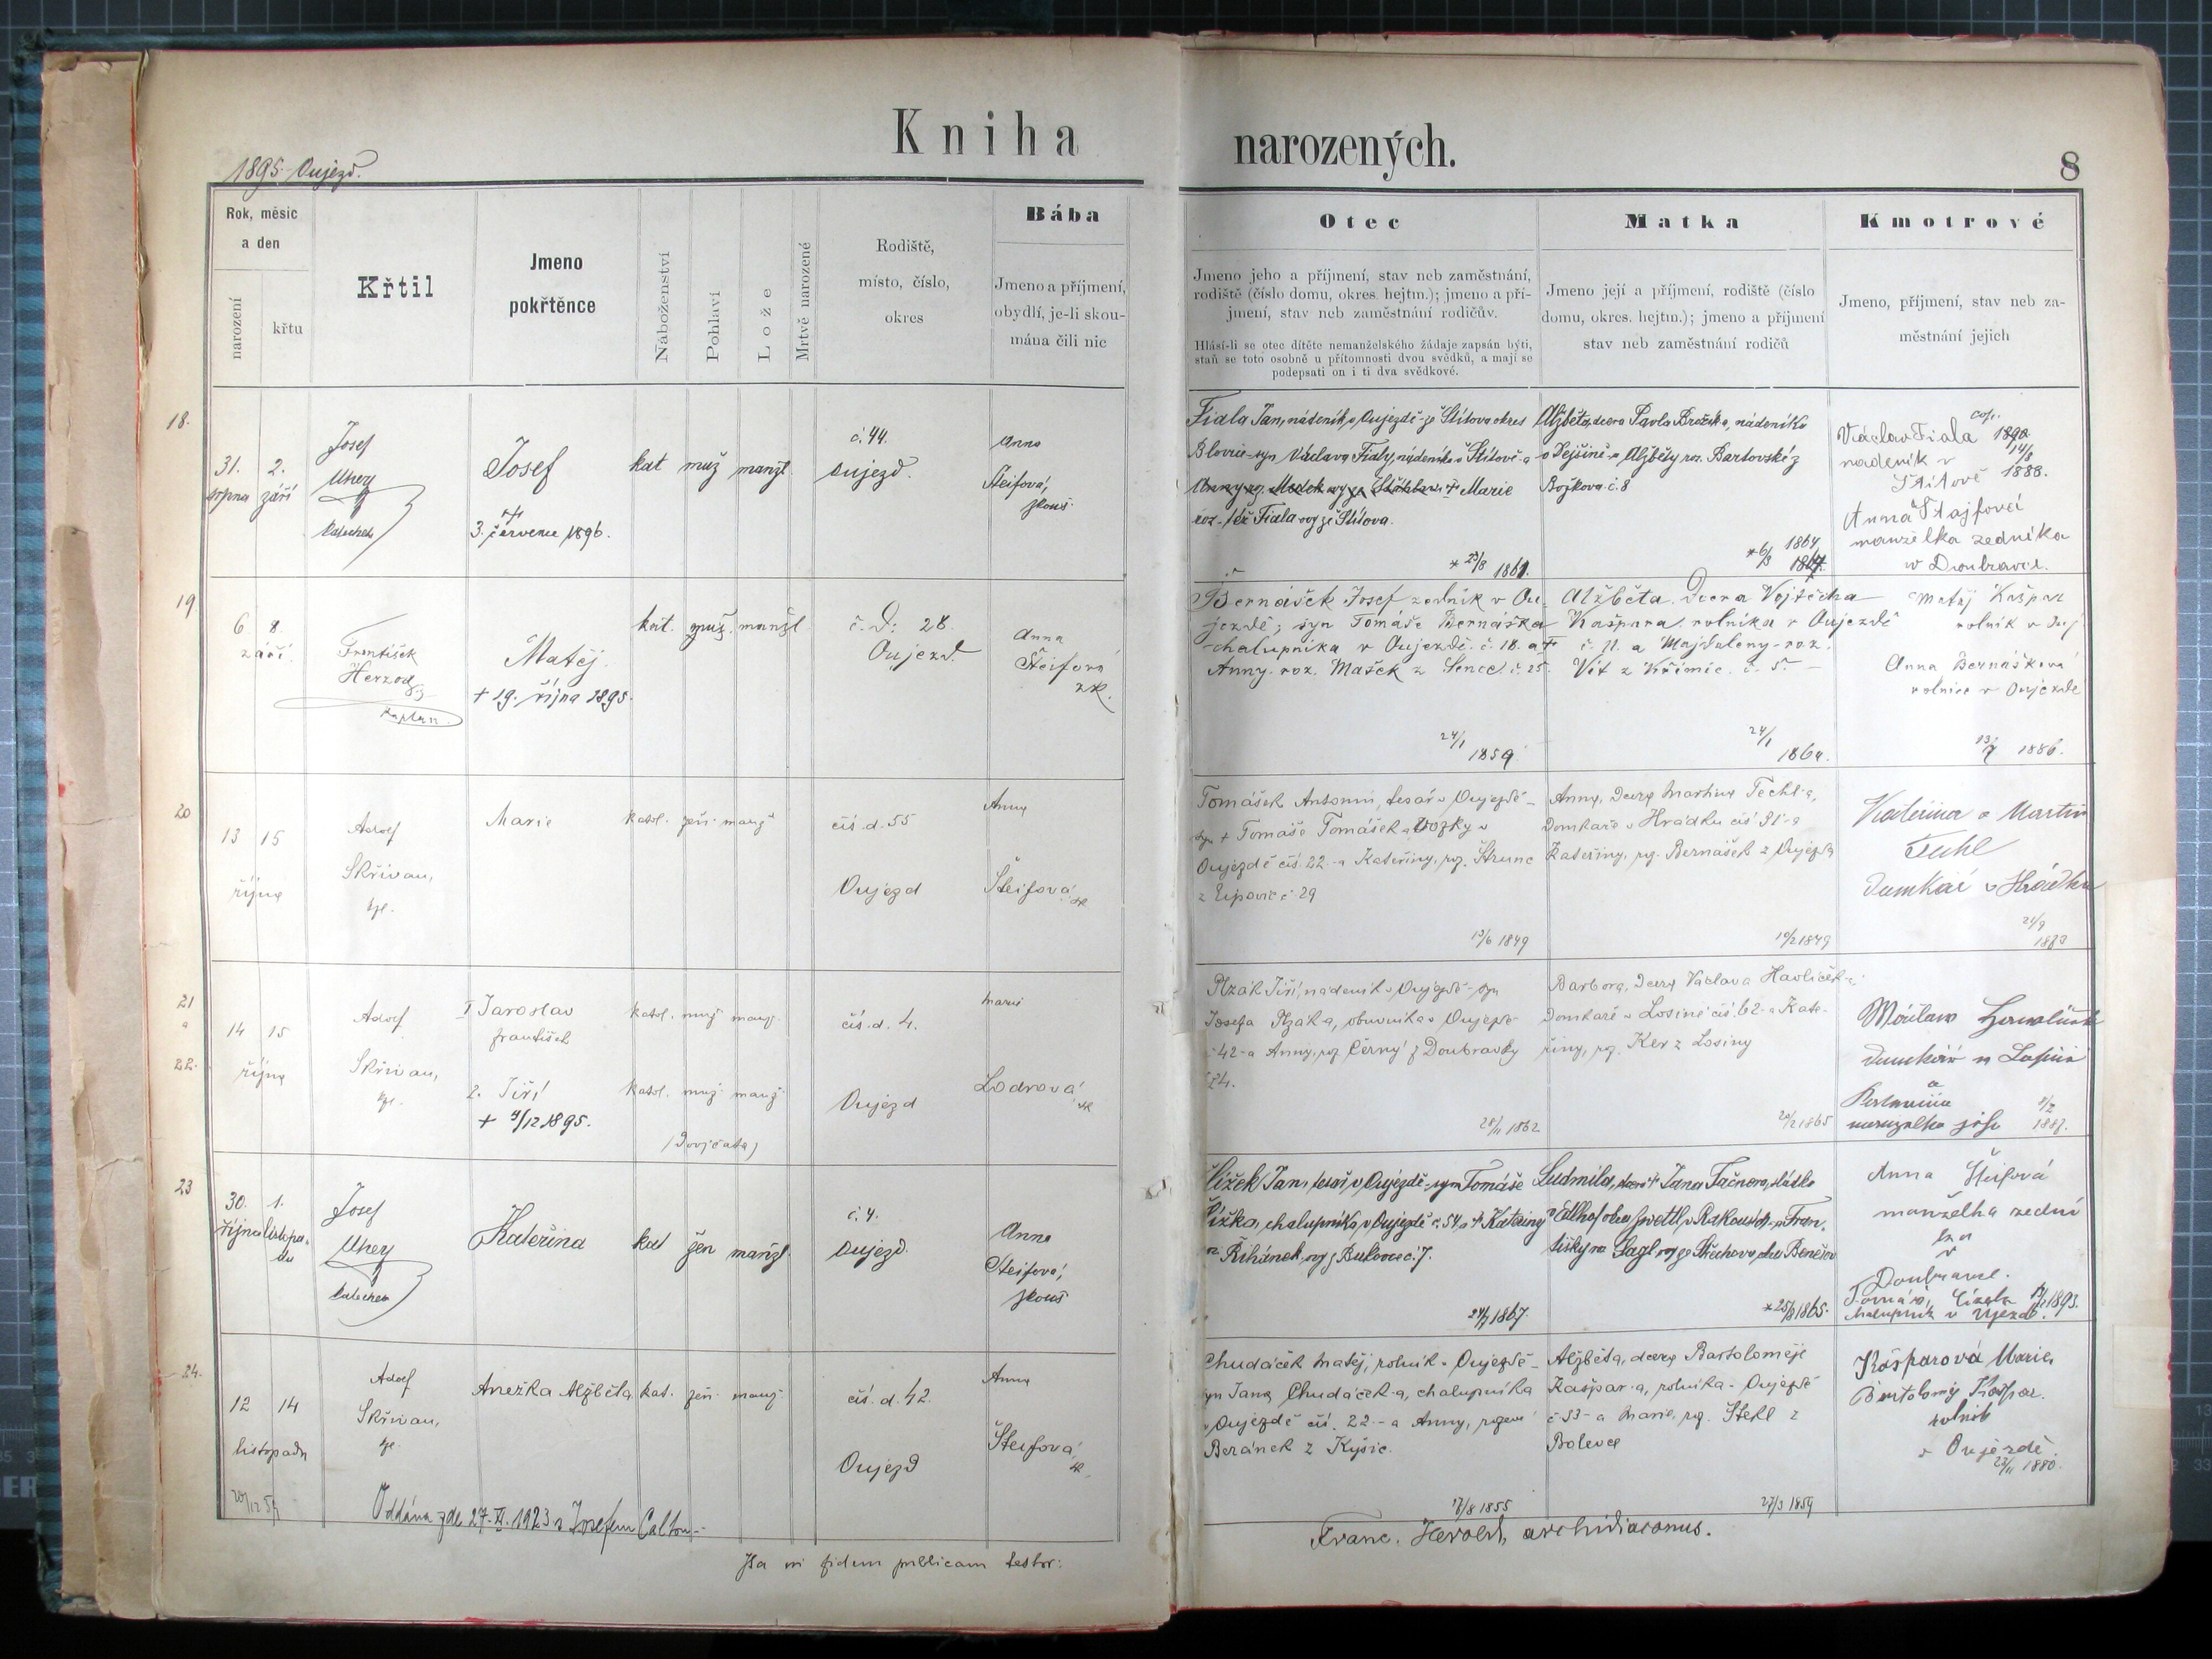 Kniha narozených.
1895 Oujezd.
8
Rok, měsíc a den
narození
křtu
Křtil
Jmeno pokřtěnce
Náboženství
Pohlaví
Lože
Mrtvě narozené
Rodiště, místo, číslo, okres
Bába
Jmeno a příjmení, obydlí, je-li skoumána čili nic
Otec
Jmeno jeho a příjmení, stav neb zaměstnání,
rodiště (číslo domu, okres. hejtm.); jmeno a pří-
jmení, stav neb zaměstnání rodičův.
Hlásí-li se otec dítěte nemanželského žádaje zapsán býti,
staň se toto osobně u přítomnosti dvou svědků, a mají se
podepsati on i ti dva svědkové.
Matka
Jmeno její a příjmení, rodiště (číslo
domu, okres. hejtm.); jmeno a příjmení
stav neb zaměstnání rodičů
Kmotrové
Jmeno, příjmení, stav neb za-
městnání jejich
18.
31. srpna
2. září
Josef
Uhery
katecheta
Josef
3. července 1896.
kat
muž
manžl.
č. 44.
Oujezd.
Anna
Šteifová,
zkouš.
Fiala Jan, nádeník v Oujezdě - ze Štítova okres
Blovice - syn Václava Fialy, nádeníka v Štítově - a
Marie
roz. též Fiala roz ze Štítova.
* 23/8 1861.
Alžběta, dcera Pavla Brožíka, nádeníka
v Dejšině - a Alžběty roz. Bartovské z
Božkova č. 8
1864
Václav Fiala
nádeník v
Štítově
1888.
Anna Štajfová
manželka zedníka
v Doubravce.
19
6 8.
září.
František
Herzog
kaplan.
Matěj.
+ 19. října 1895.
kat.
muž.
manžl
č. d: 28.
Oujezd.
Anna
Šteifová
zk.
Bernášek Josef zedník v Ou-
jezdě; syn Tomáše Bernáška
chalupníka v Oujezdě. č. 18. a
Anny. roz. Mašek z Senec. č. 25.
24/1 1859
Alžběta. dcera Vojtěcha
Kašpara. rolníka v Oujezdě
č. 11. a Majdaleny - roz.
Vít z Křimic. č. 5. -
24/1
Matěj Kašpar
rolník v Ouj
Anna Bernášková
rolnice v Oujezdě
1886.
20
13 15
října
Adolf
Skřivan,
kpl.
Marie
katol.
žen.
manž.
čís. d. 55
Oujezd
Anna
Šteifová, zk
Tomášek Antonín, tesař v Oujezdě -
syn + Tomáše Tomášek-a
Oujezdě čís. 22 - a Kateřiny, roz. Štrunc
z Ejpovic č. 29
13/6 1849
Anna, dcera Martina Techl-a,
domkaře v Hrádku čís 91 - a
Kateřiny, roz. Bernášek z Oujezda
10/2 1849
Kateřina a Martin
Tuhl
Domkář v Hrádku
21/9
21
a
22.
14 15
října
Adolf
Skřivan,
kpl.
1 Jaroslav
František
2. Jiří
+ 4/12 1895.
katol. muž. manž.
katol. muž. manž.
(Dvojčata)
čís. d. 4.
Oujezd
Marie
Lodrová, zk
Plzák Jiří, nádeník v Oujezdě - syn
Josefa Plzáka, obuvníka v Oujezdě
č 42 - a Anny, roz. Černý z Doubravky
24.
28/11 1862
Barbora, dcera Václava Havlíček-a
domkaře v Losiné čís. 62 - a Kate-
řiny, roz. Ker z Losiny
1865
domkář
a
manželka
1887.
23
30. října
1. listopadu
Josef
Uhery
katecheta
Kateřina
kat
žen
manžl.
č. 4.
Oujezd.
Anna
Šteifová,
zkouš
Čížek Jan, tesař v Oujezdě - syn Tomáše
Čížka, chalupníka v Oujezdě č. 54, a + Kateřiny
roz Řihánek, roz z Bukovce č. 7.
1867.
Ludmila, dcera + Jana
Zwettl v Rakousích - a Fran-
tišky roz Benešov
* 25/8 1865.
Anna Šteifová
manželka zední
ka
v
Doubravce.
Tomáš Čížek
chalupník v Újezdě.
1893.
24.
12 14
listopadu
Adolf
Skřivan,
kpl.
Anežka Alžběta
kat.
žen.
manž.
čís. d. 42.
Oujezd
Anna
Šteifová, zk.
Chudáček Matěj, rolník v Oujezdě -
syn Jana Chudáček-a, chalupníka
v Oujezdě čís. 22 - a Anny, rozené
Beránek z Kyšic.
17/8 1855
Alžběta, dcera Bartoloměje
Kašpar-a, rolníka v Oujezdě
č 33 - a Marie, roz. Stehl z
Bolevce
27/3 1859
Kašparová Marie,
Bartoloměj Kašpar.
rolník
v Oujezdě.
1880.
Oddána zde 27. XI. 1923 s Josefem
Ita in fidem publicam testor:
Franc. Herold, archidiaconus.